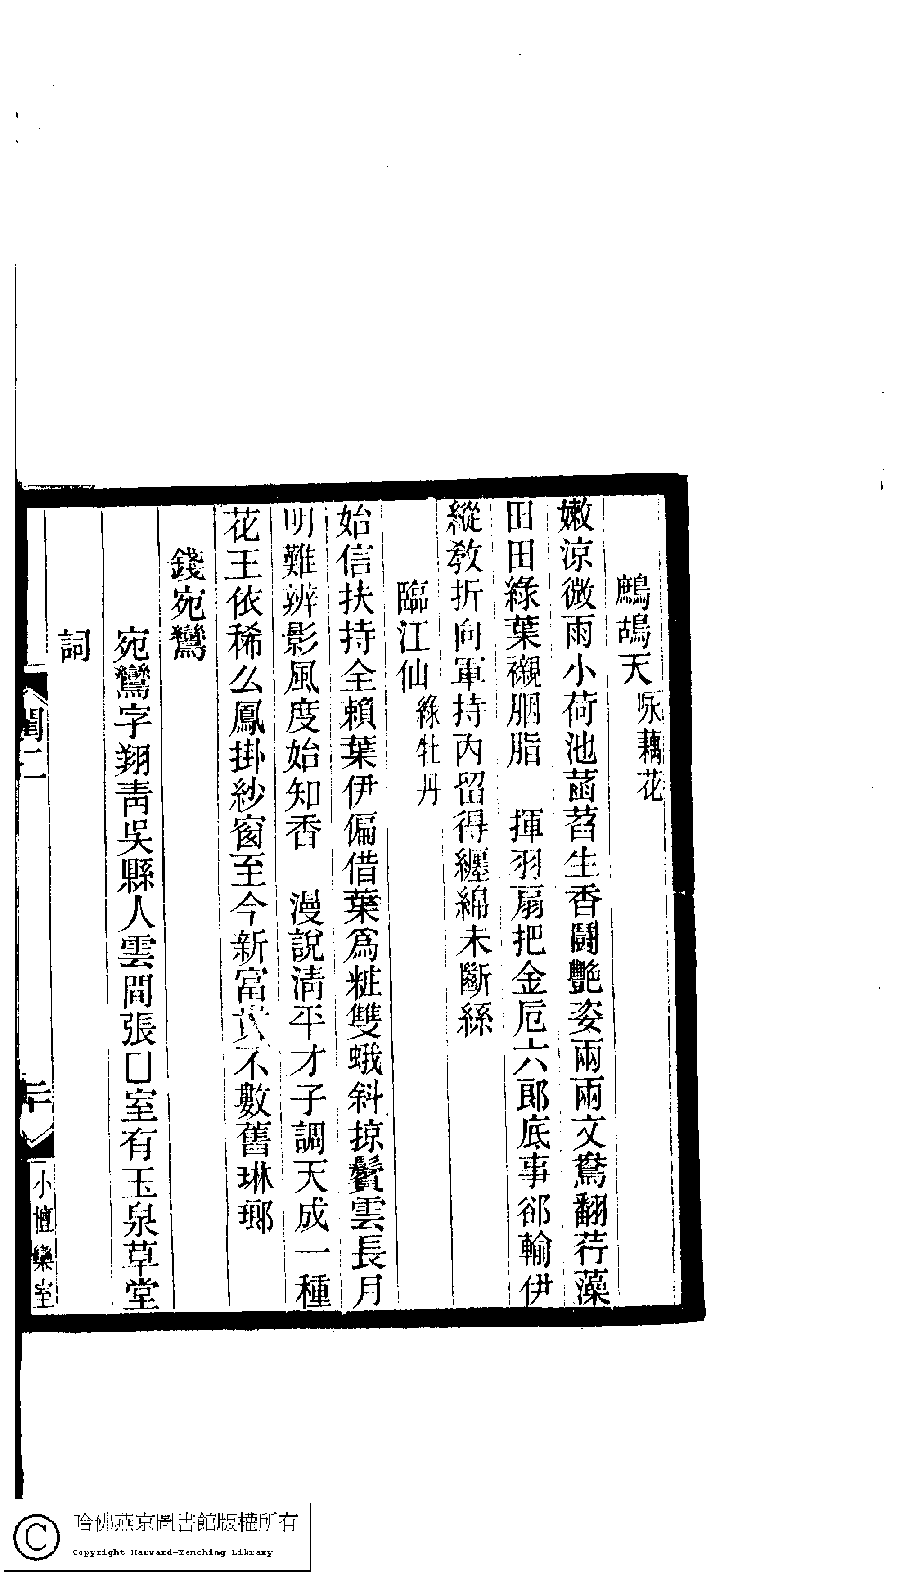 鷓鴣天 咏藕花
嫩涼微雨小荷池菡萏生香鬪艷姿兩兩文鴛翻荇藻
田田綠葉襯胭脂　揮羽扇把金卮六郎底事郤輸伊
縱教折向軍持內留得纏綿未斷絲
臨江仙 綠牡丹
始信扶持全賴葉伊偏借葉爲粧雙蛾斜掠鬢雲長月
明難辨影風度始知香　漫說淸平才子調天成一種
花王依稀么鳳掛紗窗至今新富貴不數舊琳瑯
錢宛鸞
宛鸞字翔靑吳縣人雲間張口室有玉泉草堂
詞
閨二
二十
小檀欒室
哈佛燕京圖書館版權所有
Copyright Harvard-Yenching Library